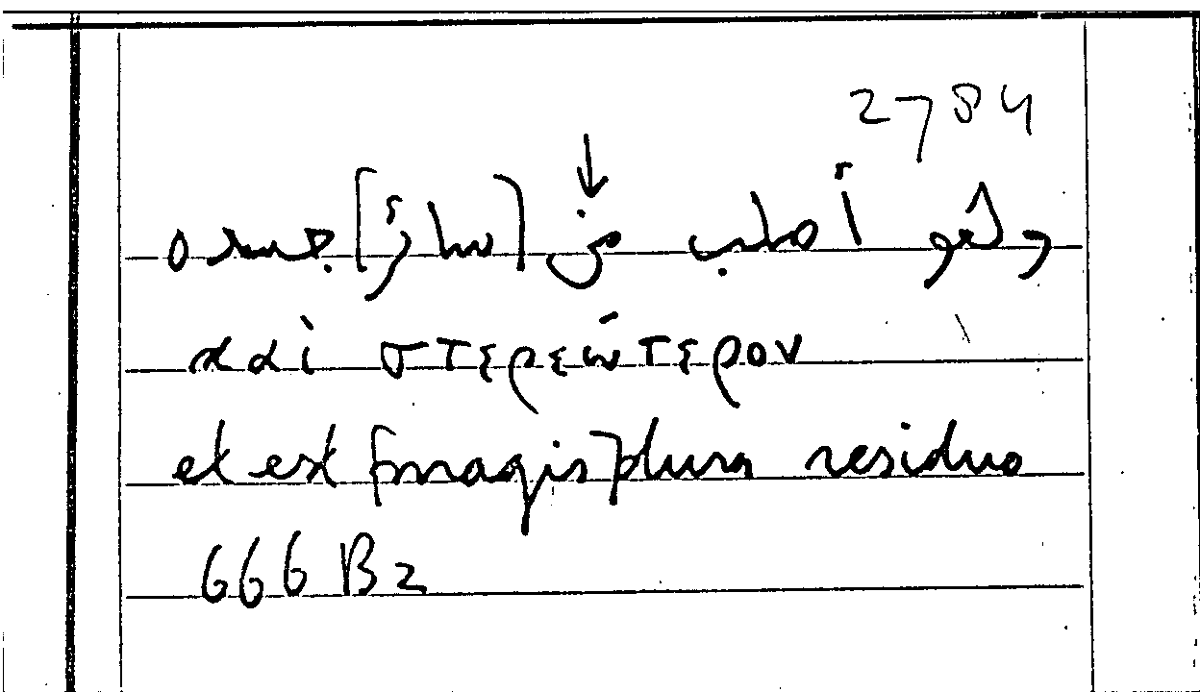 2784
↓
وهو أصلب من [سائر] جسده
καὶ στερεώτερον
et est [magis] dura residuo
666 B2